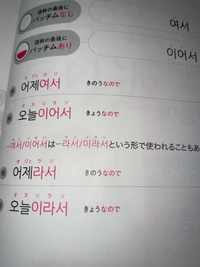 語幹の最後に
パッチムなし
여서
語幹の最後に
パッチムあり
이어서
어제여서 きのうなので
오늘이어서 きょうなので
-여서/이어서は-라서/이라서という形で使われることもあ
어제라서 きのうなので
오늘이라서 きょうなので